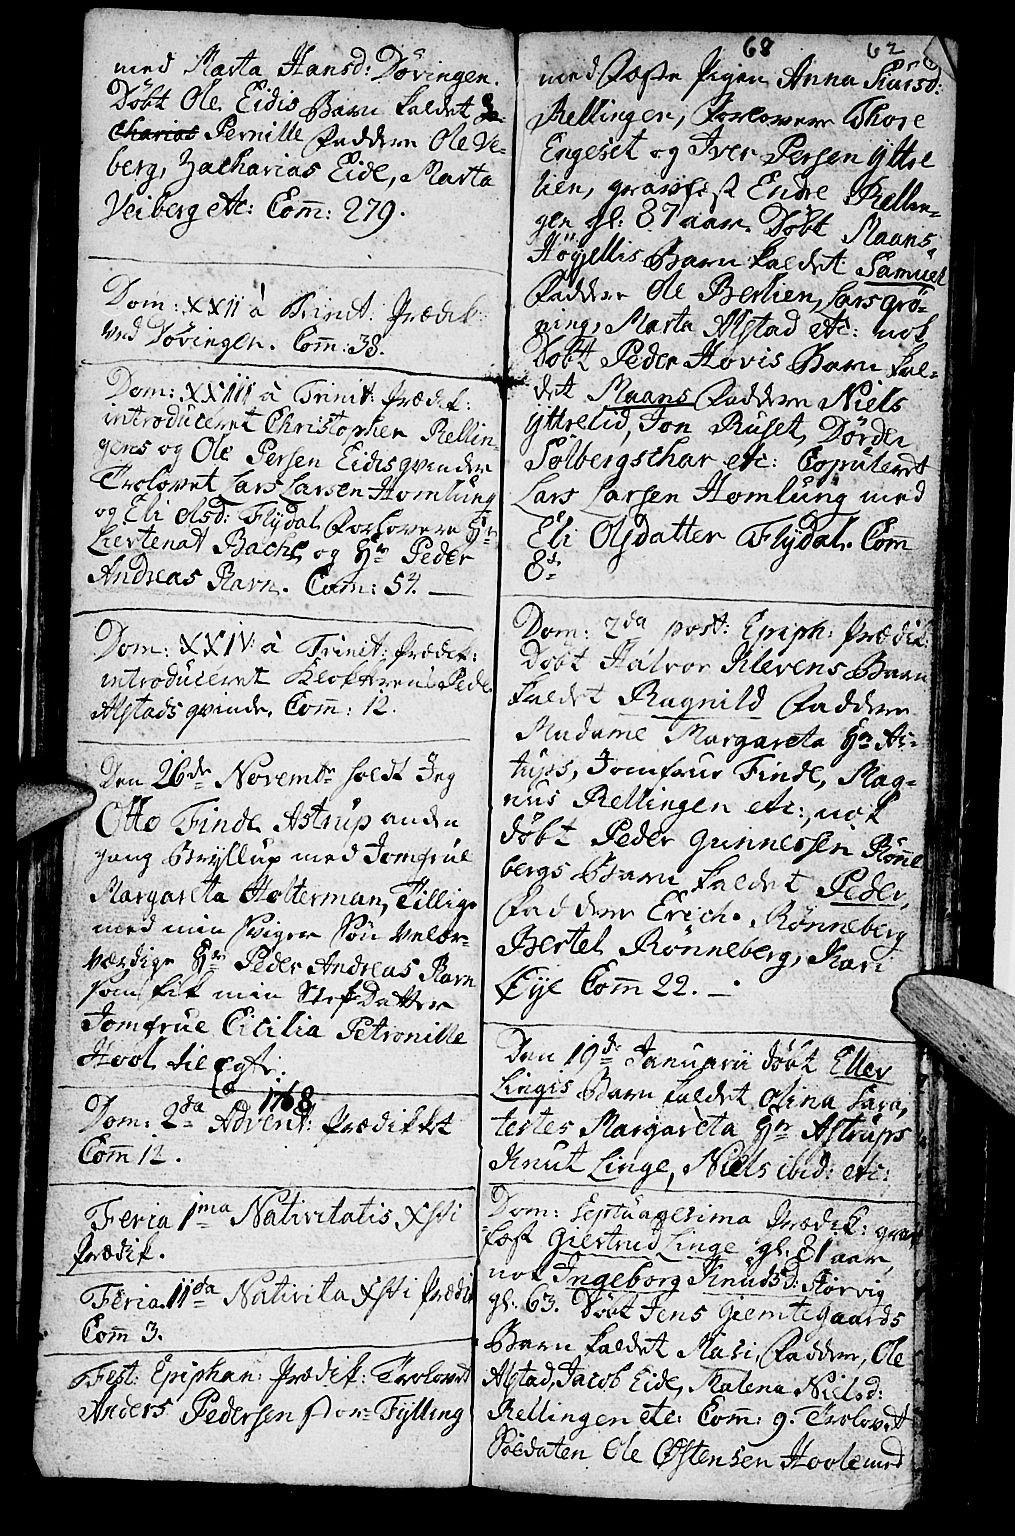 med Marta Hansd: Dövingen.
Döbt Ole Eidis Barn kaldet Za-
charias Pernille Faddere Ole Ve-
berg, Zacharias Eide, Marta
Veiberg etc: Com̄: 279.
Dom: XXII à Trinit: Prædik:
ved Dövingen. Com̄: 38.
Dom: XXIII à Trinit: Prædik:
introduceret Christopher Relling-
gens og Ole Persen Eidis qvinder
Trolovet Lars Larsen Homlung
og Eli Olsd: Flydal Forlovere Hr
Lieutenat Bache og Hr Peder
Andreas Ravn. Com̄: 54.
Dom: XXIV à Trinit: Prædik:
introduceret Klokkerens Peder
Alstads qvinde, Com̄: 12.
Den 26de Novembr holdt Jeg
Otto Finde Astrup anden
gang Bryllup med Jomfrue
Margareta Holterman, Tillige
med min Sviger Sön Velær-
værdige Hr Peder Andreas Ravn
som fik min Stef Datter
Jomfrue Cicilia Petronille
Hool til Egte.
1768
Dom: 2da Advent: Prædikket
Com̄ 12.
Feria 1ma Nativitatis Xsti
Prædik.
Feria 11da Nativita Xsti Prædik
Com̄ 3.
Fest: Epiphan: Prædik: Trolovet
Anders Pedersen Stor-Fylling
68 62
med Fæste Pigen Anna Siursd:
Rellingen, Forlovere Thore
Engeset og Iver Persen Yttre
lien, gravfæst Endre Relling-
gen gl: 87 aar. Döbt Maans
Höyellis Barn kaldet Samuel
Faddere Ole Berlien, Lars Grö-
ning, Marta Alstad etc: nok
Döbt Peder Hovis Barn kal-
det Maans Faddere Niels
Yttrelid, Jon Ruset, Dörde
Solbergschar etc: Copuleret
Lars Larsen Homlung med
Eli Olsdatter Flydal. Com̄
8t
Dom: 2da post: Epiph: Prædik:
Döbt Halvor Klevens Barn
kaldet Ragnild Faddere
Madame Margareta Hr As-
trups, Jomfrue Finde, Mag-
nus Rellingen etc:, nok
döbt Peder Gunnersen Rönne
bergs Barn kaldet Peder,
Faddere Erich Rönneberg
Bertel Rönneberg, Kari
Eye Com̄ 22.
Den 19de Januarii döbt Eller
Lingis Barn kaldet Olina Sara,
testes Margareta Hr Astrups
Knut Linge, Niels ibid: etc:
Dom: Septuagesima Prædik: grav
fæst Giertrud Linge gl: 81 aar,
nok Ingeborg Knudsd: Störvig
gl: 63. Döbt Jens Giemtegaards
Barn kaldet Masi, Faddere, Ole
Alstad, Jacob Eide, Malena Nielsd:
Rellingen etc: Com̄: 9. Trolovet
Soldaten Ole Östensen Hoole med